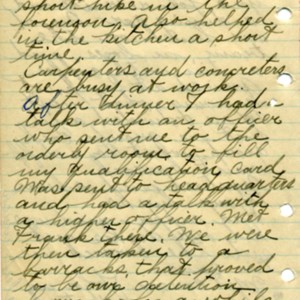 short hike in the
forenoon, also helped
in the kitchen a short
time.
Carpenters and concreters
are busy at works.
After dinner I had a
talk with an officer
who sent me to the
orderly room to fill
my qualification card.
Was sent to headquarters
and had a talk with
a higher officer. Met
Frank there. We were
then taken to a
barracks, that proved
to be our detention